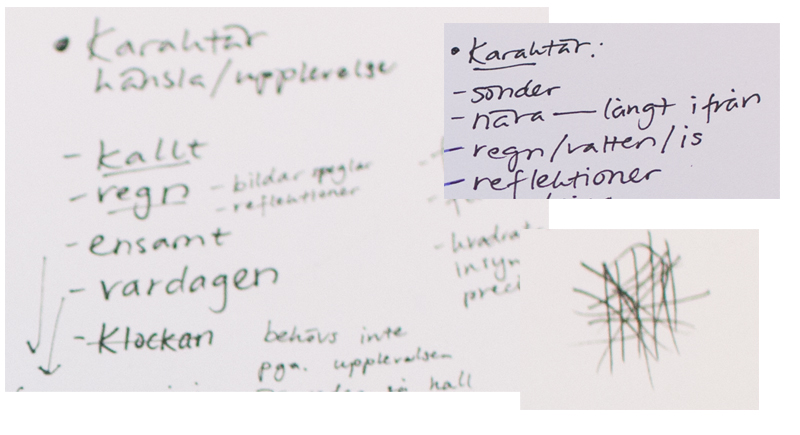 • Karaktär
känsla/upplevelse
- kallt
- regn - bildar speglar
- reflektioner
- ensamt
- vardagen
- Klockan behövs inte
pga. upplevelsen
kall
- kvadrat
• Karaktär:
- sönder
- nära — långt ifrån
- regn/vatten/is
- reflektioner